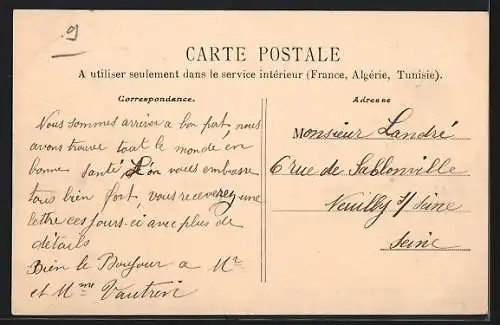 CARTE POSTALE
A utiliser seulement dans le service intérieur (France, Algérie, Tunisie).
Correspondance.
Nous sommes arriver a bon port, nous
avons trouve tout le monde en
bonne santé L'on vous embrasse
tous bien fort, vous receverez une
lettre ces jours-ci avec plus de
détails
Bien le Bonjour a Mr
et Mme
Adresse
Monsieur Landré
6 rue de Sablonville
Neuilly s/ Seine
Seine